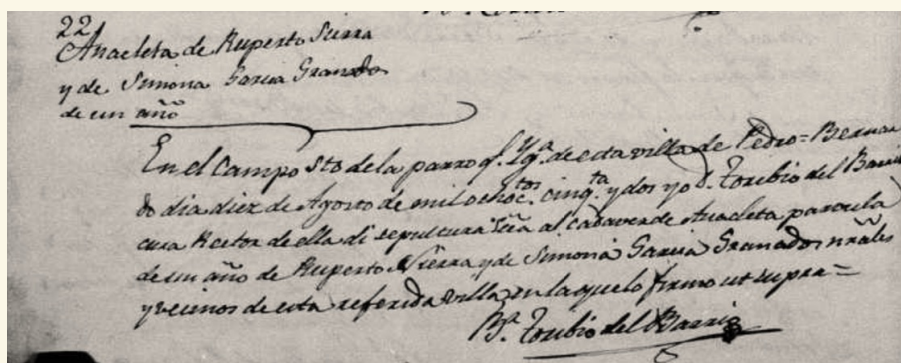 22
Anacleta de Ruperto Sierra
y de Simona Garcia Granado
de un año
En el Campo Sto de la parroql. Yga. de esta villa de Pedro=Bernar
do dia diez de Agosto de mil ochoctos. cinqta. y dos yo D. Toribio del Barrio
cura Rector de ella di sepultura al cadaver de Anacleta parvula
de un año de Ruperto Sierra y de Simona Garcia Granados nrales
y vecinos de esta referida villa, en la q firmo ut supra=
Br. Toribio del Barrio